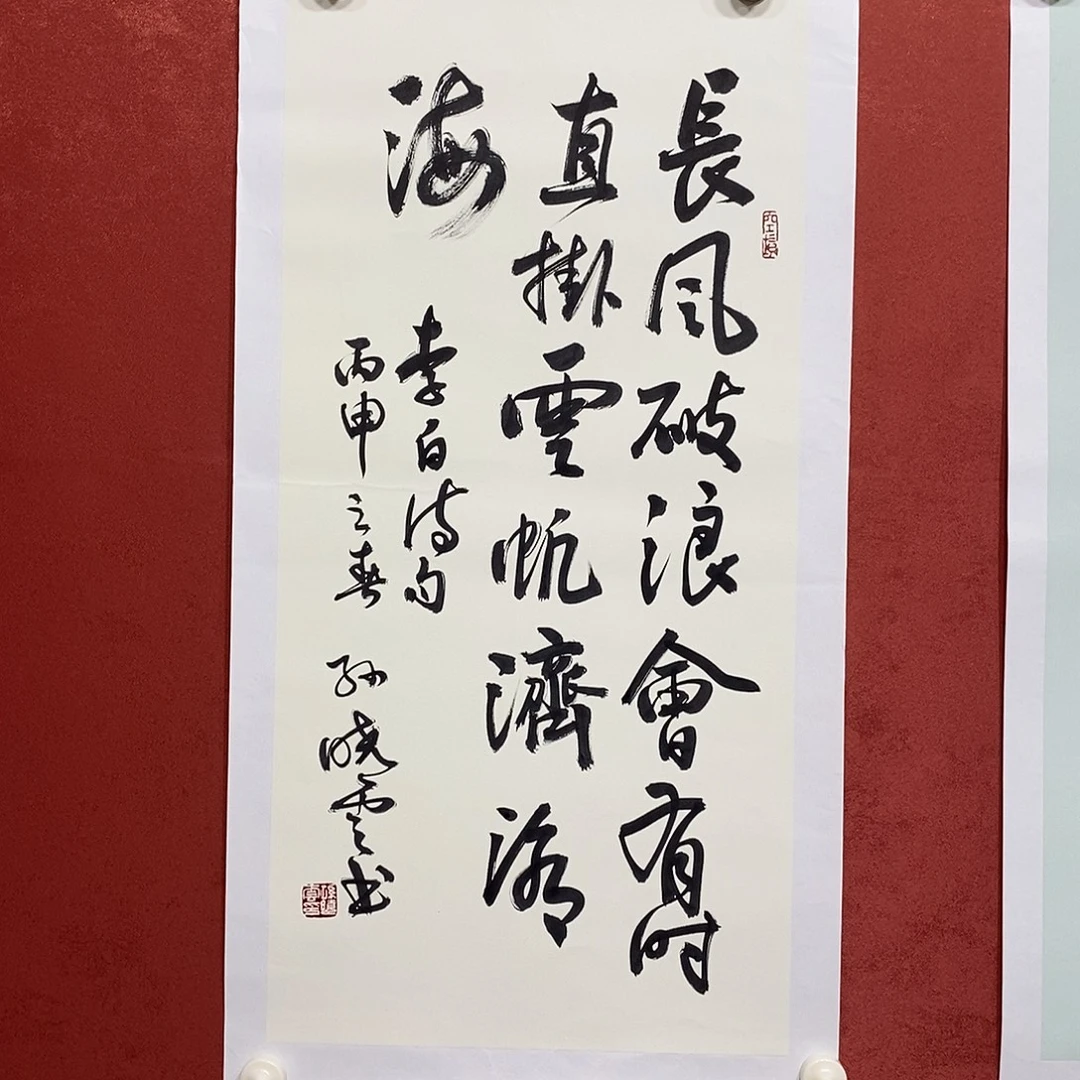 長風破浪會有时
直掛雲帆濟滄
海
李白诗句
丙申之春 孙晓云书